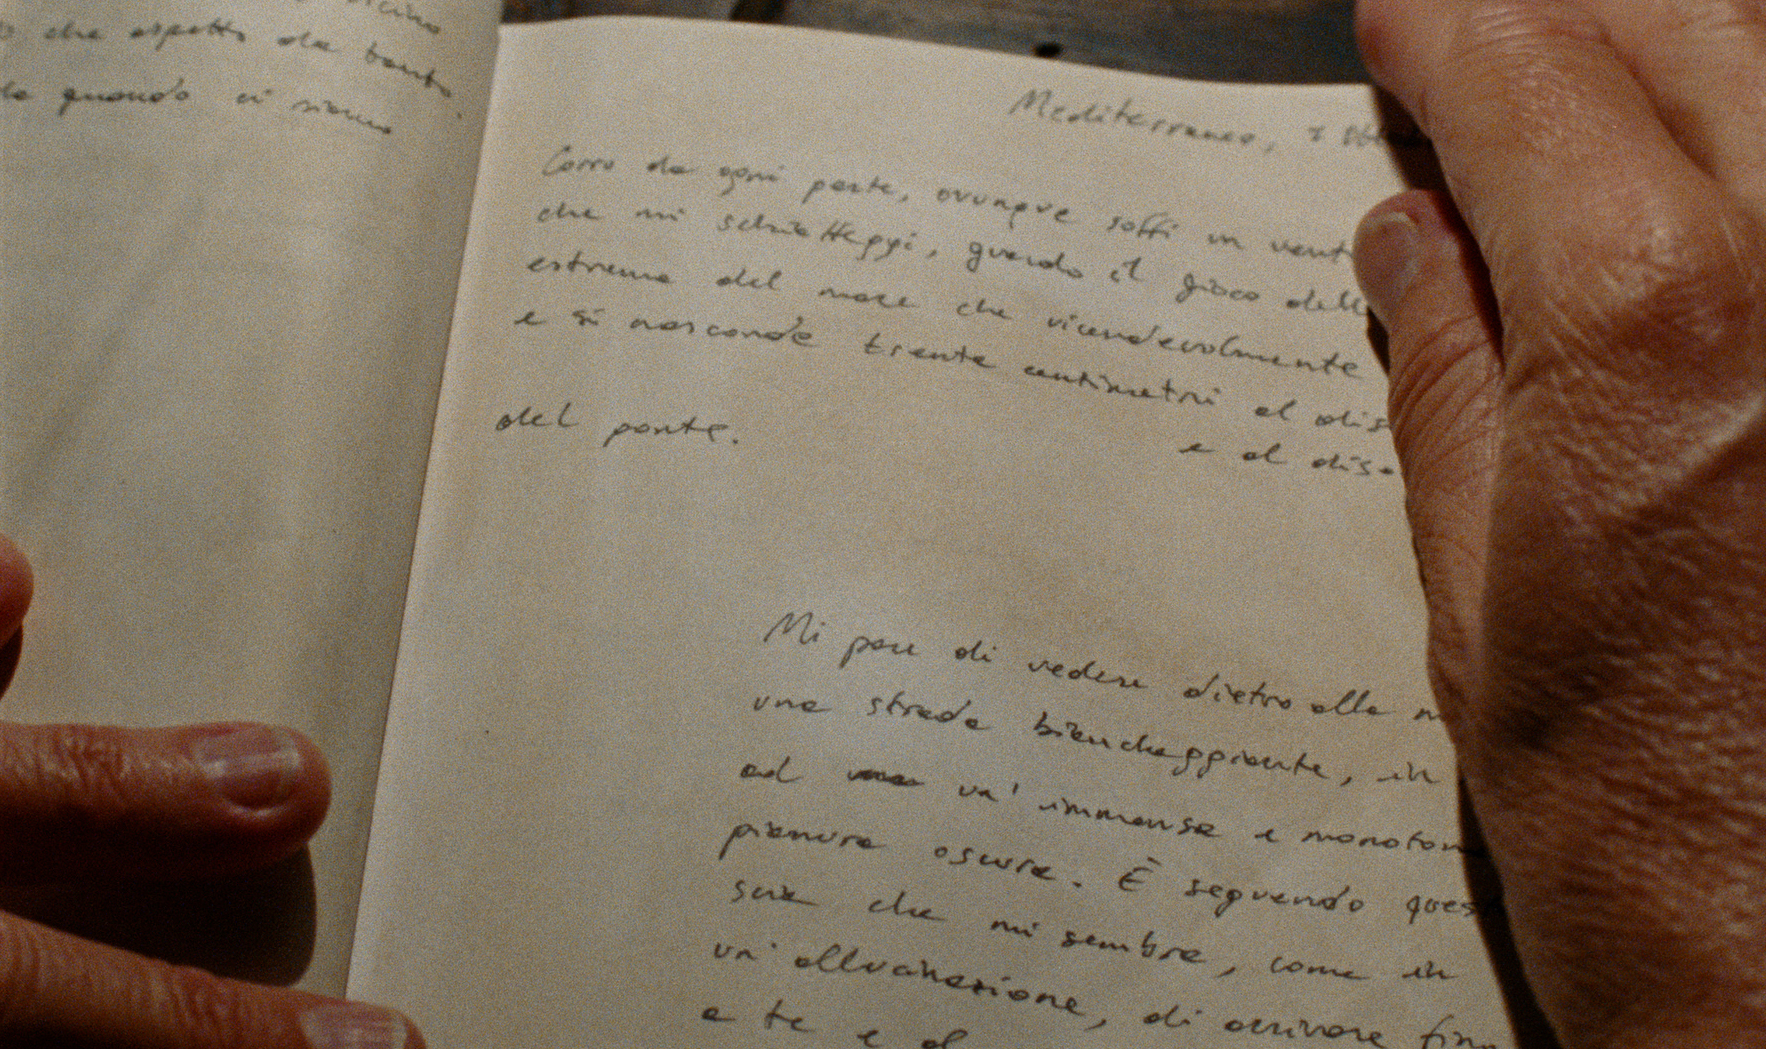 che aspetto da tanto.
quando ci siamo
Mediterraneo,
Corro da ogni parte, ovunque soffi un vent
che mi schiaffeggi, guardo il gioco dell
estremo del mare che vicendevolmente
e si nasconde trenta centimetri al dis
e al diso
del ponte.
Mi pare di vedere dietro alla
una strada biancheggiante, in
ad un' immensa e monoton
pianura oscura. È seguendo ques
scia che mi sembra, come in
un' allucinazione, di arrivare fin
a te e